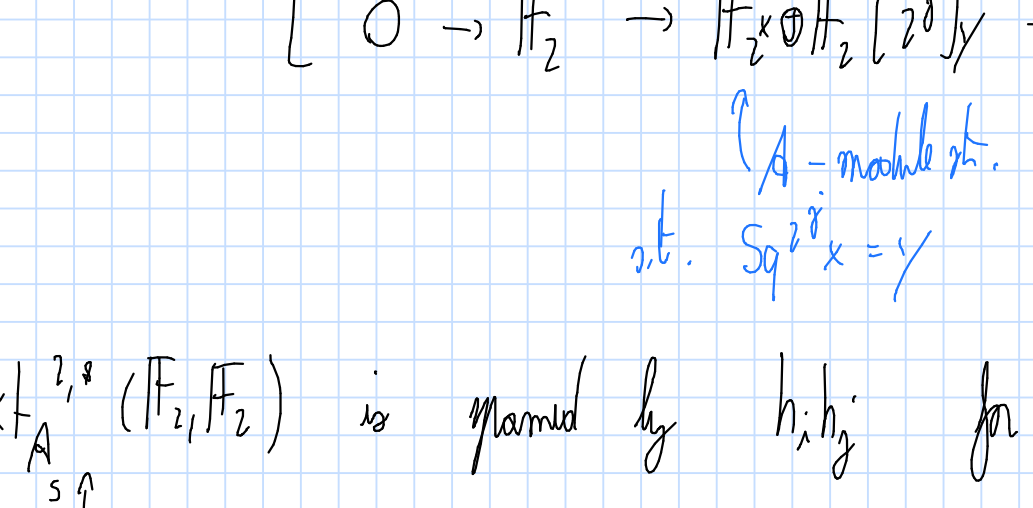 [ 0 → 𝔽₂ → 𝔽₂x ⊕ 𝔽₂[2^j]y
↑ A-module st.
s.t. Sq^{2^j} x = y
xt_A^{2,*} (𝔽₂, 𝔽₂) is spanned by h_i h_j for
s ↑